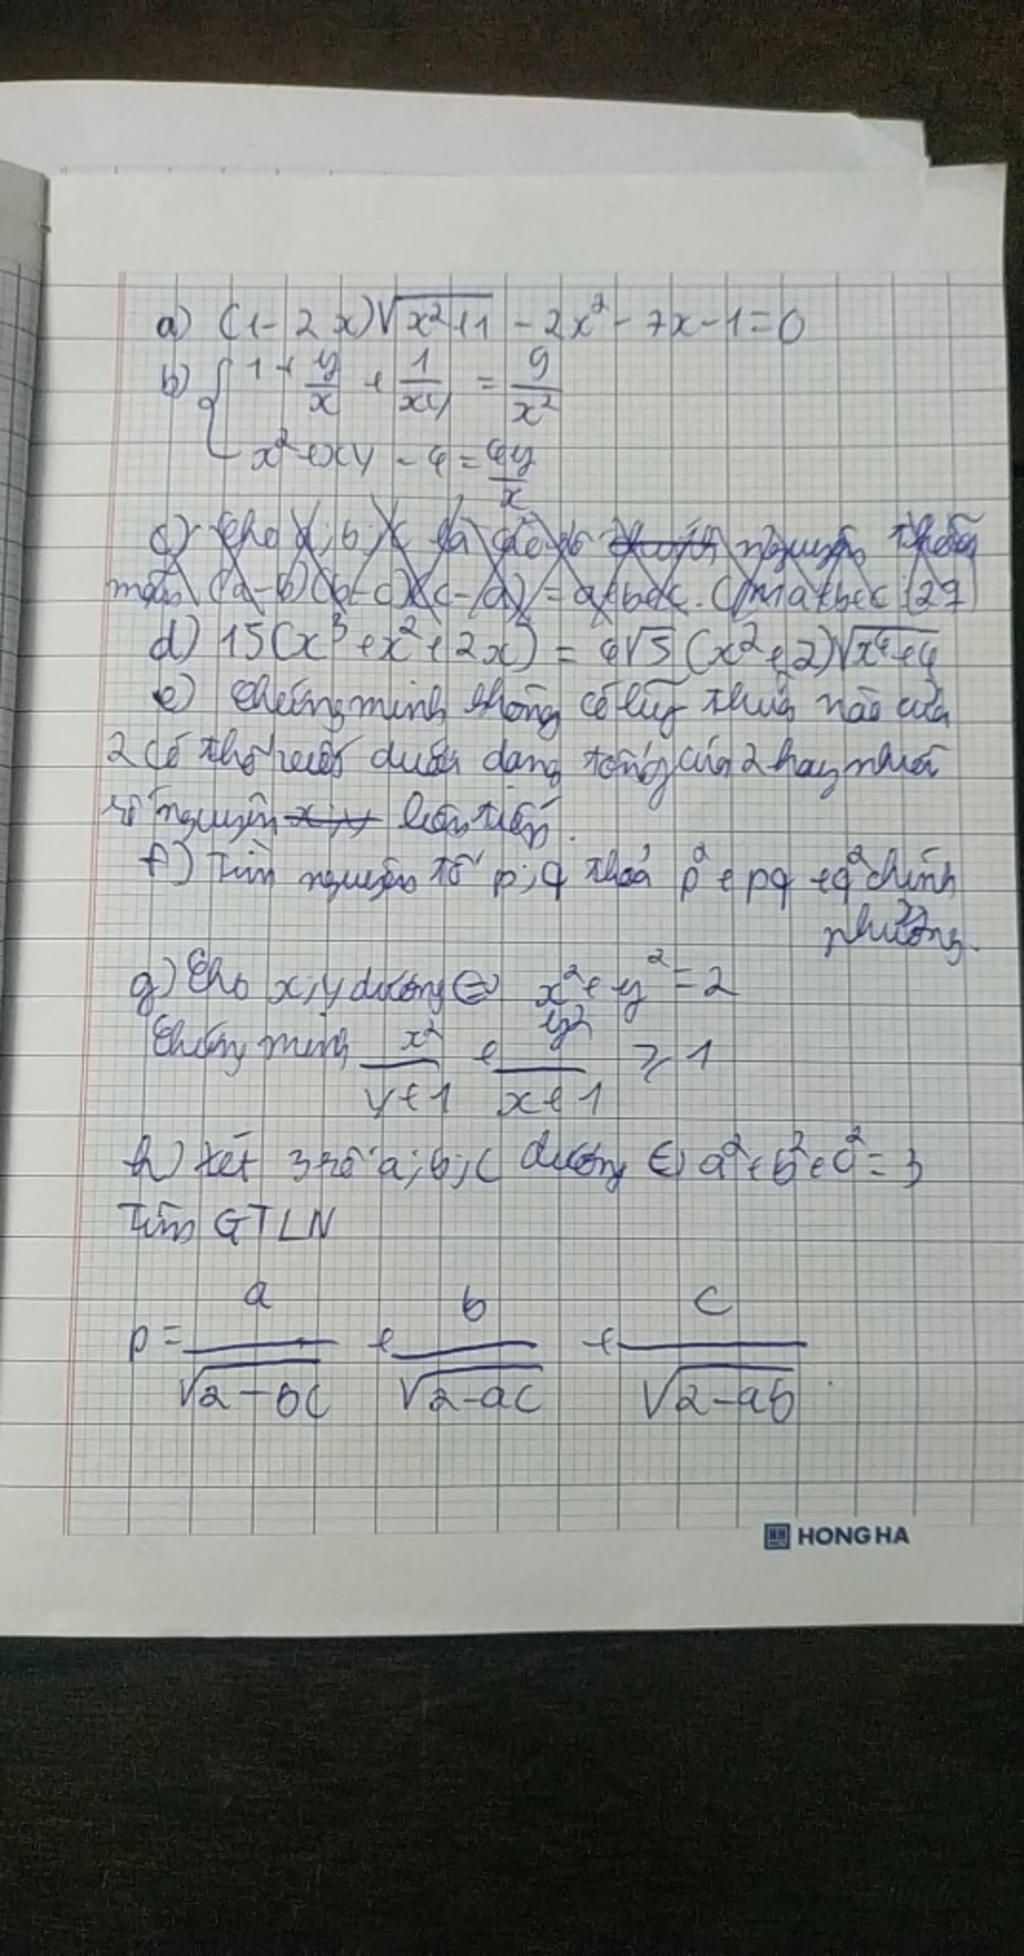 a) (1-2x)√(x²+1) - 2x² - 7x - 1 = 0
b) { 1 + y/x + 1/xy = 9/x²
x² + xy - 4 = 4y/x
c) Cho a; b; c là các số nguyên thỏa
mãn (a-b)(b-c)(c-a) = a+b+c. Cm a+b+c ⋮ 27
d) 15(x³ + x² + 2x) = 4√5 (x²+2)√(x⁴+4)
e) Chứng minh không có lũy thừa nào của
2 có thể viết dưới dạng tổng của 2 hay nhiều
số nguyên liên tiếp.
f) Tìm nguyên tố p; q thỏa p² + pq + q² chính
phương.
g) Cho x; y dương x² + y² = 2
Chứng minh x²/(y+1) + y²/(x+1) ≥ 1
h) Xét 3 số a; b; c dương a² + b² + c² = 3
Tìm GTLN
P = a/√(2-bc) + b/√(2-ac) + c/√(2-ab)
HONG HA